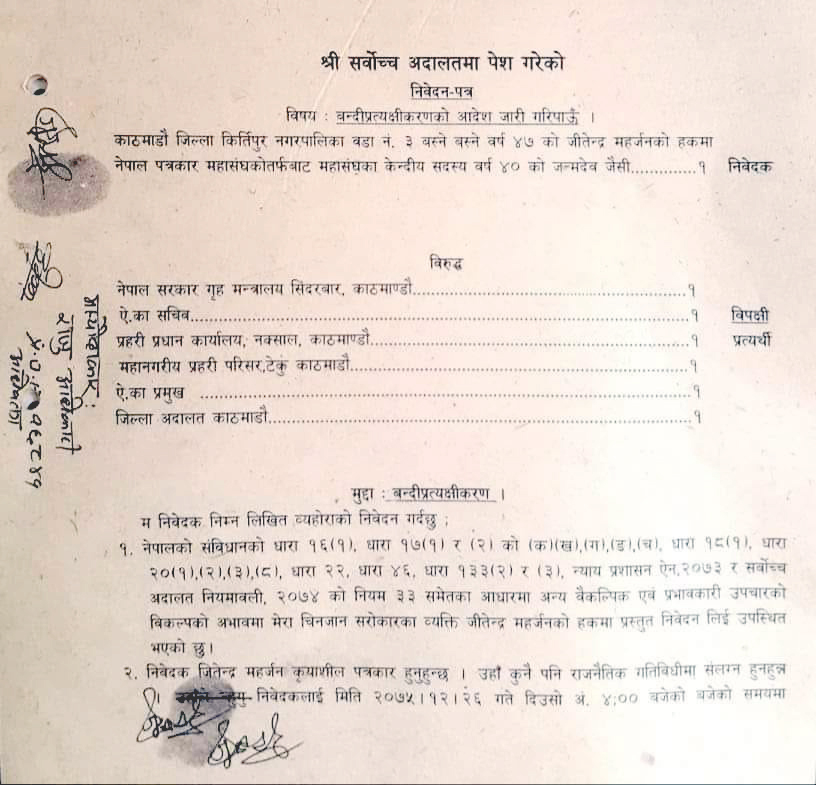 श्री सर्वोच्च अदालतमा पेश गरेको
निवेदन-पत्र
विषय : बन्दीप्रत्यक्षीकरणको आदेश जारी गरिपाऊँ ।
काठमाडौ जिल्ला किर्तिपुर नगरपालिका वडा नं. ३ बस्ने बस्ने वर्ष ४७ को जीतेन्द्र महर्जनको हकमा
नेपाल पत्रकार महासंघकोतर्फबाट महासंघका केन्दीय सदस्य वर्ष ४० को जन्मदेव जैसी..............१ निवेदक
विरुद्ध
नेपाल सरकार गृह मन्त्रालय सिंदरबार, काठमाण्डौ..........................................१
ऐ.का सचिव..........................................................................१ विपक्षी
प्रहरी प्रधान कार्यालय, नक्साल, काठमाण्डौ................................................१ प्रत्यर्थी
महानगरीय प्रहरी परिसर,टेकु काठमाडौ...................................................१
ऐ.का प्रमुख .........................................................................१
जिल्ला अदालत काठमाडौ................................................................१
मुद्दा : बन्दीप्रत्यक्षीकरण ।
म निवेदक निम्न लिखित व्यहोराको निवेदन गर्दछु :
१. नेपालको संविधानको धारा १६(१), धारा १७(१) र (२) को (क)(ख),(ग),(ङ),(च), धारा १८(१), धारा
२०(१),(२),(३),(८), धारा २२, धारा ४६, धारा १३३(२) र (३), न्याय प्रशासन ऐन,२०७३ र सर्वोच्च
अदालत नियमावली, २०७४ को नियम ३३ समेतका आधारमा अन्य वैकल्पिक एवं प्रभावकारी उपचारको
बिकल्पको अभावमा मेरा चिनजान सरोकारका व्यक्ति जीतेन्द्र महर्जनको हकमा प्रस्तुत निवेदन लिई उपस्थित
भएको छु।
२. निवेदक जितेन्द्र महर्जन कृयाशील पत्रकार हुनुहुन्छ । उहाँ कुनै पनि राजनैतिक गतिविधीमा संलग्न हुनहुन्न
। निवेदकलाई मिति २०७५।१२।२६ गते दिउसो अं. ४:०० बजेको बजेको समयमा